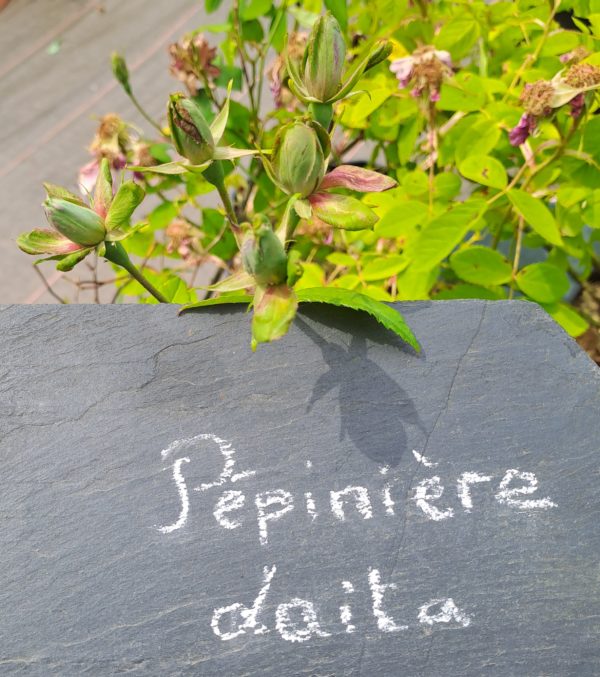 Pépinière
daita